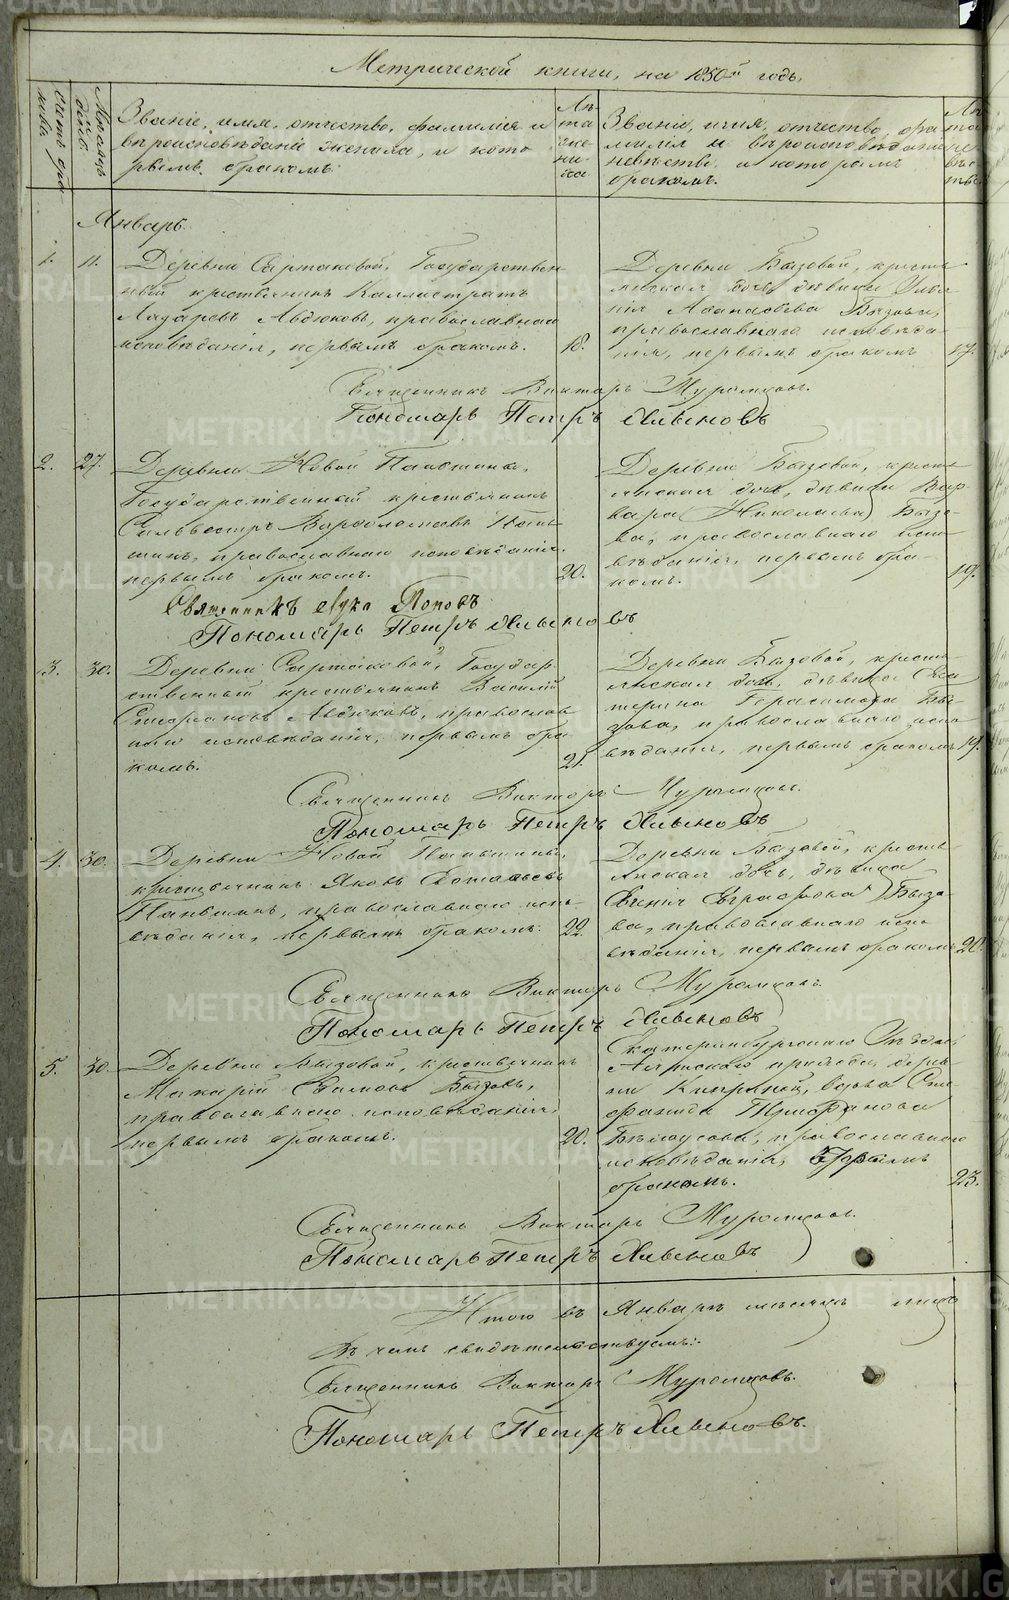 Метрической книги, на 1850й годъ.
Счетъ браковъ.
Мѣсяцъ и день.
Званіе, имя, отчество, фамилія и
вѣроисповѣданіе жениха, и кото
рымъ бракомъ.
Лѣ-
та
же-
ни-
ха
Званіе, имя, отчество, фа
милія и вѣроисповѣданіе
невѣсты и которымъ
бракомъ.
Январь.
1. 11. Деревни Сартаковой, Государствен
ный крестьянинъ Каллистратъ
Лазаревъ Авдюковъ, православнаго
исповѣданія, первымъ бракомъ. 18.
Деревни Бызовой, кресть
янская дочь, дѣвица
Аѳанасьева Бызова,
православнаго исповѣда
нія, первымъ бракомъ 17.
Священникъ Викторъ Муромцовъ.
Пономарь Петръ Хлыновъ
2. 27. Деревни Новой Паньшиной,
Государственный крестьянинъ
Сильвестръ Варѳоломѣевъ Пань
шинъ, православнаго исповѣданія.
первымъ бракомъ. 20.
Деревни Бызовой, кресть
янская дочь, дѣвица Вар-
вара Николаева Бызо-
ва, православнаго испо
вѣданія, первымъ бра-
комъ. 19.
Священникъ Лука Поповъ
Пономарь Петръ Хлыновъ
3. 30. Деревни Сартаковой, Государ
ственный крестьянинъ Василій
Стефановъ Авдюковъ, православ
наго исповѣданія, первымъ бра
комъ. 21.
Деревни Бызовой, кресть
янская дочь, дѣвица Ека
терина Герасимова Бы
зова, православнаго испо
вѣданія, первымъ бракомъ 19.
Священникъ Викторъ Муромцовъ.
Пономарь Петръ Хлыновъ
4. 30. Деревни Новой Паньшиной,
крестьянинъ Яковъ
Паньшинъ, православнаго испо
вѣданія, первымъ бракомъ. 22.
Деревни Бызовой, кресть
янская дочь, дѣвица
Евгенія Евграфова Бызо
ва, православнаго испо
вѣданія, первымъ бракомъ 20.
Священникъ Викторъ Муромцовъ.
Пономарь Петръ Хлыновъ
5. 30. Деревни Бызовой, крестьянинъ
Макарій Бызовъ,
православнаго исповѣданія,
первымъ бракомъ. 20.
Екатеринбургскаго Уѣзда,
Аятскаго прихода, дерев
ни вдова Сте
фанида
Бѣлоусова, православнаго
исповѣданія, вторымъ
бракомъ. 23.
Священникъ Викторъ Муромцовъ.
Пономарь Петръ Хлыновъ
Итого въ Январѣ мѣсяцѣ пять
Въ чемъ свидѣтельствуемъ:
Священникъ Викторъ Муромцовъ.
Пономарь Петръ Хлыновъ.
METRIKI.GASO-URAL.RU